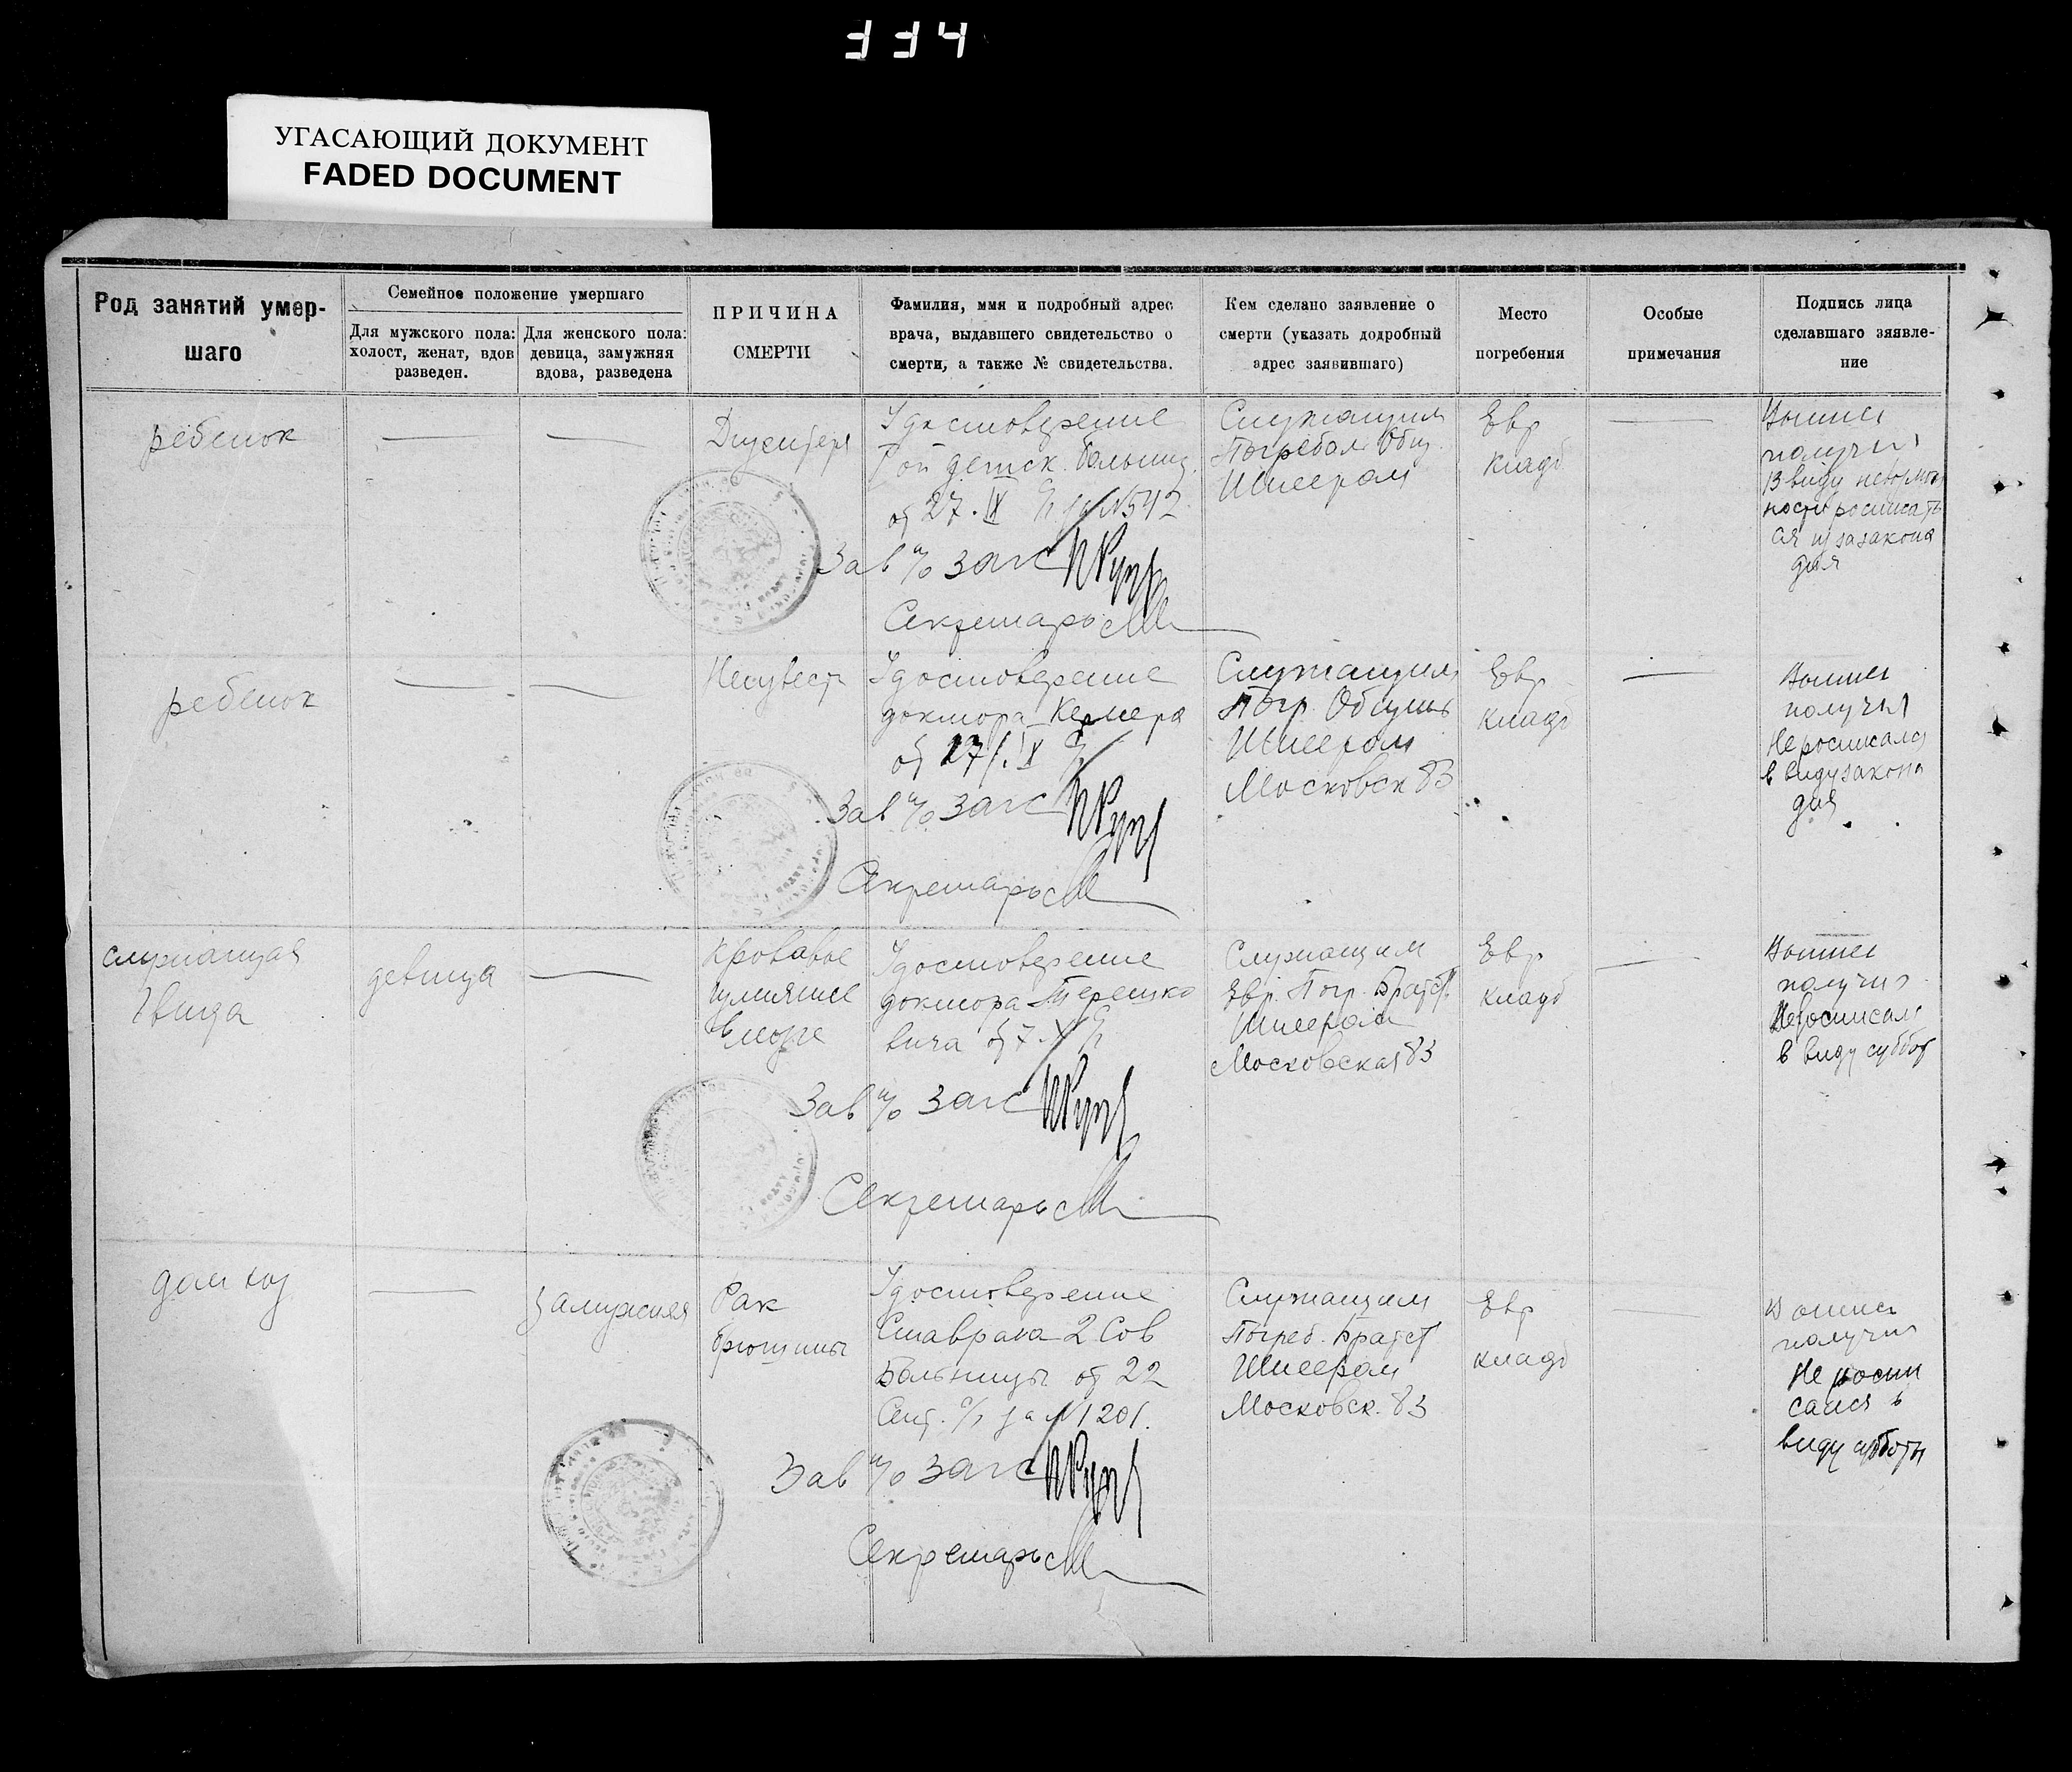 334
УГАСАЮЩИЙ ДОКУМЕНТ
FADED DOCUMENT
Род занятий умер-
шаго
Семейное положение умершаго
Для мужского пола:
холост, женат, вдов
разведен.
Для женского пола:
девица, замужняя
вдова, разведена
ПРИЧИНА
СМЕРТИ
Фамилия, ммя и подробный адрес
врача, выдавшего свидетельство о
смерти, а также № свидетельства.
Кем сделано заявление о
смерти (указать додробный
адрес заявившаго)
Место
погребения
Особые
примечания
Подпись лица
сделавшаго зяявле-
ние
ребенок
—
—
Удостоверение
детск. больниц.
от 27.IX за №542
Зав п/о загс
Секретарь
Служащим
Погребал. Общ.
Шисером
Евр
кладб
—
Выпись
получил
В виду невозмож
ности росписать
ся из за закона
дня
ребенок
—
—
Неизвест
Удостоверение
доктора Келлера
от 27/IX
Зав п/о загс
Секретарь
Служащим
Погр. Общины
Шисером
Московск 83
Евр
кладб
—
Выпись
получил
Не росписался
в виду закона
дня
служащая
девица
—
кровавое
в мозге
Удостоверение
доктора Терешко
вича от 7.X
Зав п/о загс
Секретарь
Служащим
Евр. Погр. Братст.
Шисером
Московская 83
Евр
кладб
—
Выпись
получил
Не росписался
в виду суббот
дом хоз
—
замужняя
Рак
брюшины
Удостоверение
2 Сов
Больницы от 22
Сент. с/г за №1201.
Зав п/о загс
Секретарь
Служащим
Погреб. Братст
Шисером
Московск. 83
Евр
кладб
—
Выпись
получил
Не роспи
сался в
виду субботы